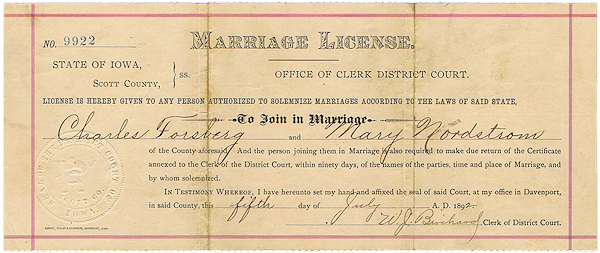 NO. 9922
MARRIAGE LICENSE.
STATE OF IOWA,
SCOTT COUNTY,
ss.
OFFICE OF CLERK DISTRICT COURT.
LICENSE IS HEREBY GIVEN TO ANY PERSON AUTHORIZED TO SOLEMNIZE MARRIAGES ACCORDING TO THE LAWS OF SAID STATE,
To Join in Marriage
Charles Forsberg and Mary Nordstrom
of the County aforesaid. And the person joining them in Marriage is also required to make due return of the Certificate
annexed to the Clerk of the District Court, within ninety days, of the names of the parties, time and place of Marriage, and
by whom solemnized.
IN TESTIMONY WHEREOF, I have hereunto set my hand and affixed the seal of said Court, at my office in Davenport,
in said County, this fifth day of July A. D. 1892
W. J. Birchard, Clerk of District Court.
IOWA